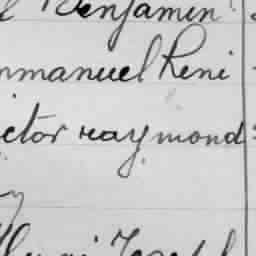 Benjamin
mmanuel René
ictor raymond
Joseph